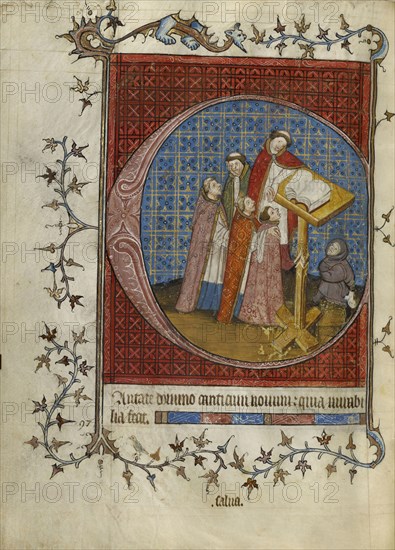 Antate domino canticum novum: quia mirabi
lia fecit.
97
.salva.
PHOTO12